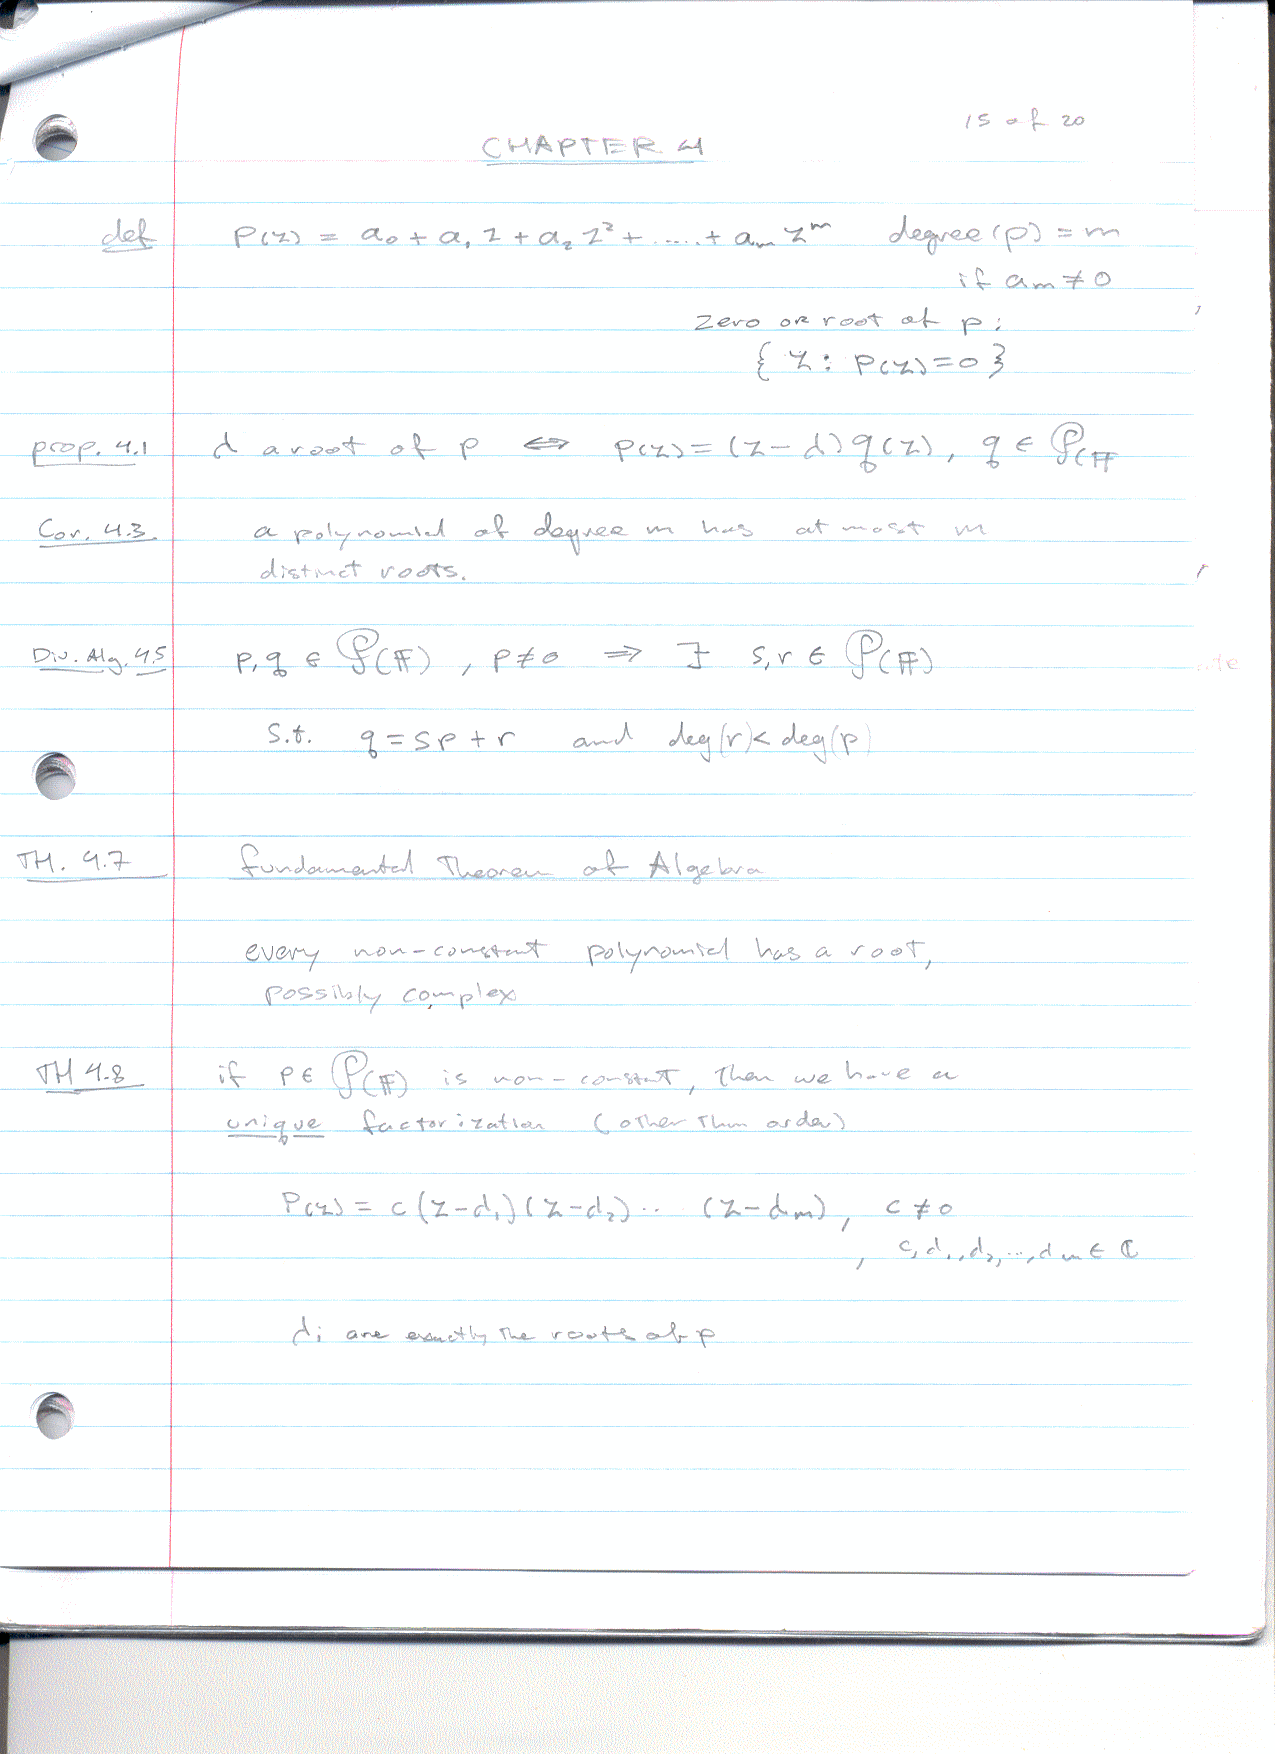 15 of 20
CHAPTER 4
def P(z) = a₀ + a₁ z + a₂ z² + ..... + aₘ zᵐ degree(p) = m
if aₘ ≠ 0
zero or root of p:
{ z : P(z)=0 }
prop. 4.1 d a root of p ⇔ p(z) = (z-d) q(z), q ∈ 𝒫(𝔽
Cor. 4.3 a polynomial of degree m has at most m
distinct roots.
Div. Alg. 4.5 p, q ∈ 𝒫(𝔽), p≠0 ⇒ ∃ s, r ∈ 𝒫(𝔽)
s.t. q = sp + r and deg(r) < deg(p)
TH. 4.7 Fundamental Theorem of Algebra
every non-constant polynomial has a root,
possibly complex
TH 4.8 if p ∈ 𝒫(𝔽) is non-constant, then we have a
unique factorization (other than order)
P(z) = c (z-d₁)(z-d₂).. (z-dₘ), c ≠ 0
, c, d₁, d₂, ..., dₘ ∈ ℂ
dᵢ are exactly the roots of p